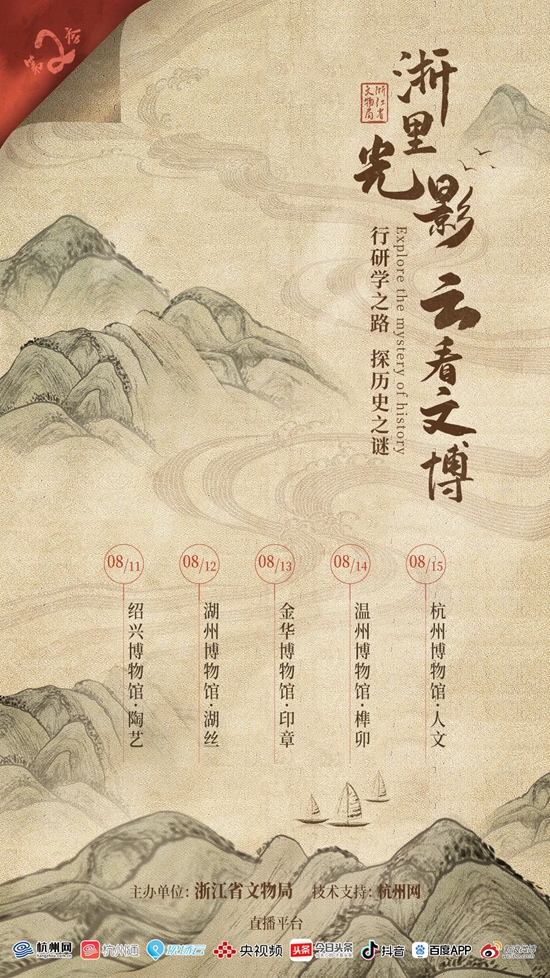 第2季
浙里
光影
云看文博
浙江省
文物局
Explore the mystery of history
行研学之路 探历史之谜
08/11
绍兴博物馆·陶艺
08/12
湖州博物馆·湖丝
08/13
金华博物馆·印章
08/14
温州博物馆·榫卯
08/15
杭州博物馆·人文
主办单位:浙江省文物局 技术支持:杭州网
直播平台
杭州网 杭州通 央视频 头条 今日头条 抖音 百度APP